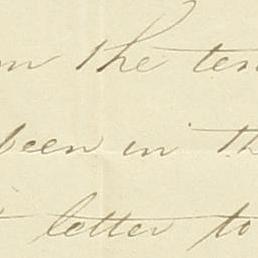 the ten
been in th
letter to